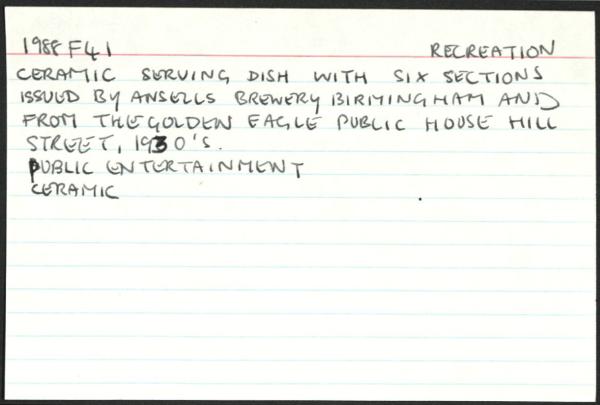 1988 F41 RECREATION
CERAMIC SERVING DISH WITH SIX SECTIONS
ISSUED BY ANSELLS BREWERY BIRMINGHAM AND
FROM THE GOLDEN EAGLE PUBLIC HOUSE HILL
STREET, 1930'S.
PUBLIC ENTERTAINMENT
CERAMIC